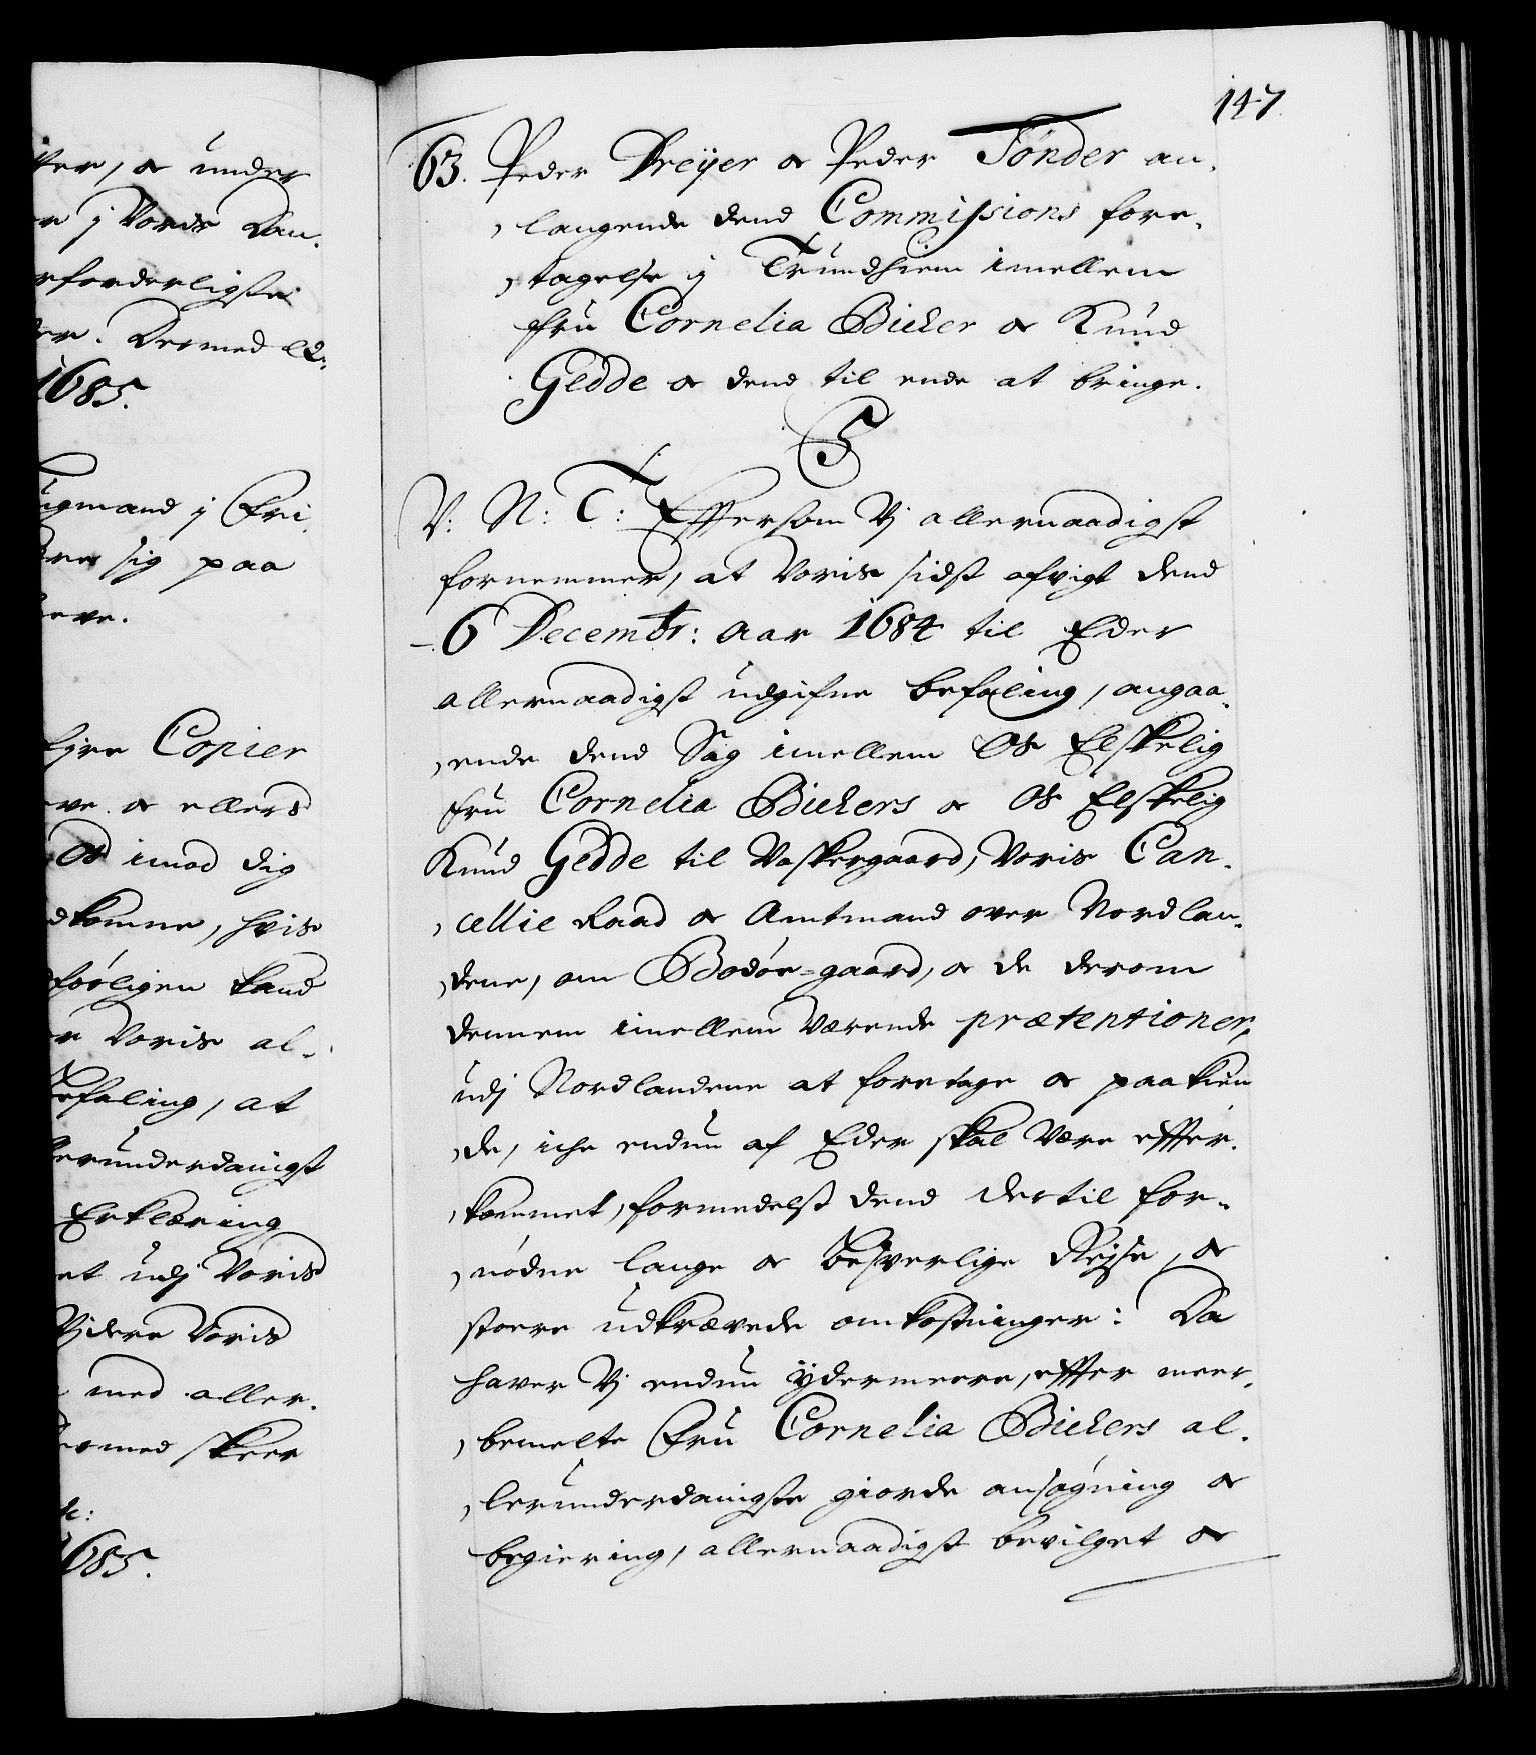 ter, og under
er j Voris Dan-
rforderligste
der. Dermed &c:
1685.
ugmand j Chri
dre sig paa
leve.
fyre Copier
eve og ellers
Os imod dig
dkomne, hvis
føyligen kand
er Voris al-
befaling, at
lerunderdanigst
Erklæring
et udj Voris
Vjdere Voris
med aller-
Dermed skeer
1685.
147
63. Peder Dreyer og Peder Tønder an-
langende dend Commissions fore-
tagelse j Trundhiem imellem
fru Cornelia Bicker og Knud
Gedde og dend til ende at bringe.
C5
V: N: T: Effersom Vj allernaadigst
fornemmer, at Voris sidst afvigt dend
6 Decembr: Aar 1684 til Eder
allernaadigst udgifne befaling, angaa-
ende dend Sag imellem Os Elskelig
fru Cornelia Bickers og Os Elskelig
Knud Gedde til Vaskergaard, Voris Can-
cellie Raad og Amtmand over Nordlan-
dene, om Bodøe-gaard, og de derom
dennem imellem værende prætentioner,
udj Nordlandene at foretage og paakien
de, iche endnu af Eder skal være effter-
kommet, formedelst dend dertil for-
nødne lange og besverlige Reyse, og
stoere udkrævede omkostninger: Da
haver Vj endnu ydermeere, effter meer-
bemelte Fru Cornelia Bickers al-
lerunderdanigste giorde ansøgning og
begiering, allernaadigst bevilget og